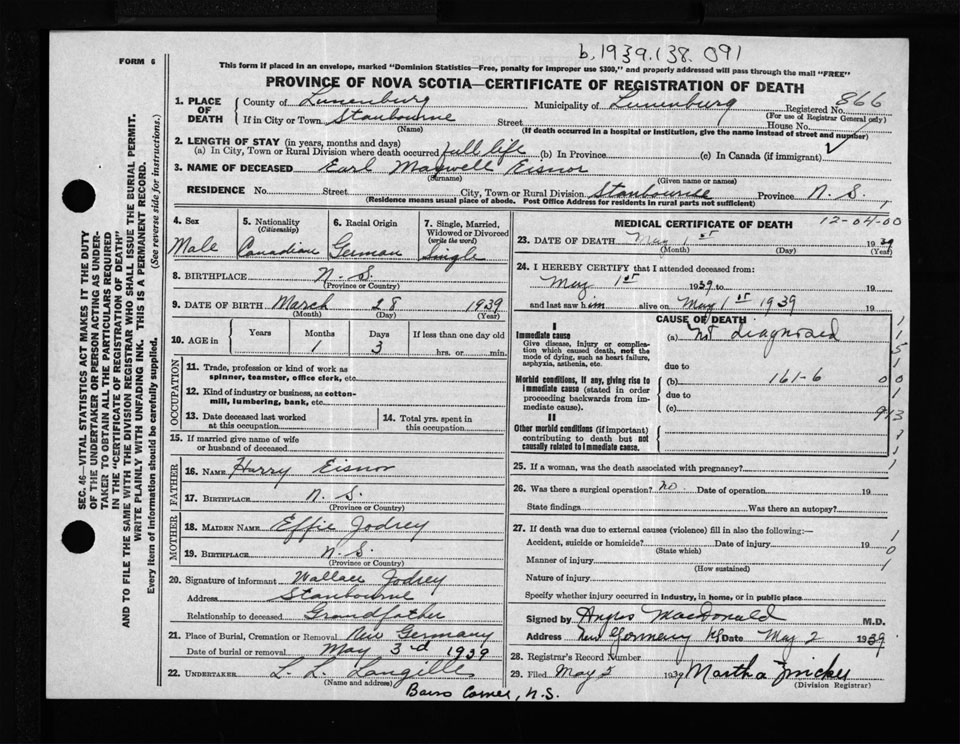 b.1939.138.091
FORM 6
This form if placed in an envelope, marked "Dominion Statistics—Free, penalty for improper use $300," and properly addressed will pass through the mail "FREE"
PROVINCE OF NOVA SCOTIA—CERTIFICATE OF REGISTRATION OF DEATH
SEC. 46—VITAL STATISTICS ACT MAKES IT THE DUTY
OF THE UNDERTAKER OR PERSON ACTING AS UNDER-
TAKER TO OBTAIN ALL THE PARTICULARS REQUIRED
IN THE "CERTIFICATE OF REGISTRATION OF DEATH"
AND TO FILE THE SAME WITH THE DIVISION REGISTRAR WHO SHALL ISSUE THE BURIAL PERMIT.
WRITE PLAINLY WITH UNFADING INK. THIS IS A PERMANENT RECORD.
Every item of information should be carefully supplied. (See reverse side for instructions.)
1. PLACE OF DEATH County of Lunenburg Municipality of Lunenburg Registered No. 866
(For use of Registrar General only)
If in City or Town Stanbourne Street House No.
(Name) (If death occurred in a hospital or institution, give the name instead of street and number)
2. LENGTH OF STAY (in years, months and days)
(a) In City, Town or Rural Division where death occurred full life (b) In Province (c) In Canada (if immigrant)
3. NAME OF DECEASED Earl Maxwell Eisnor
(Surname) (Given name or names)
RESIDENCE No. Street City, Town or Rural Division Stanbourne Province N. S.
(Residence means usual place of abode. Post Office Address for residents in rural parts not sufficient)
4. Sex Male
5. Nationality (Citizenship) Canadian
6. Racial Origin German
7. Single, Married, Widowed or Divorced (write the word) Single
8. BIRTHPLACE N. S.
(Province or Country)
9. DATE OF BIRTH March 28 1939
(Month) (Day) (Year)
10. AGE in Years Months Days If less than one day old
1 3 hrs. or min.
OCCUPATION
11. Trade, profession or kind of work as spinner, teamster, office clerk, etc.
12. Kind of industry or business, as cotton-mill, lumbering, bank, etc.
13. Date deceased last worked at this occupation
14. Total yrs. spent in this occupation
15. If married give name of wife or husband of deceased
FATHER
16. NAME Harry Eisnor
17. BIRTHPLACE N. S.
(Province or Country)
MOTHER
18. MAIDEN NAME Effie Jodrey
19. BIRTHPLACE N. S.
(Province or Country)
20. Signature of informant Wallace Jodrey
Address Stanbourne
Relationship to deceased Grandfather
21. Place of Burial, Cremation or Removal New Germany
Date of burial or removal May 3rd 1939
22. UNDERTAKER L. L. Langille
(Name and address)
Barss Corner, N.S.
MEDICAL CERTIFICATE OF DEATH
12-04-00
23. DATE OF DEATH May 1st 1939
(Month) (Day) (Year)
24. I HEREBY CERTIFY that I attended deceased from:
May 1st 1939 to 19
and last saw him alive on May 1st 1939 19
CAUSE OF DEATH
I
Immediate cause
Give disease, injury or complication which caused death, not the mode of dying, such as heart failure, asphyxia, asthenia, etc.
(a) Not diagnosed
due to
Morbid conditions, if any, giving rise to immediate cause (stated in order proceeding backwards from immediate cause).
(b) 161-6
due to
(c)
II
Other morbid conditions (if important) contributing to death but not causally related to immediate cause.
25. If a woman, was the death associated with pregnancy?
26. Was there a surgical operation? no. Date of operation 19
State findings Was there an autopsy?
27. If death was due to external causes (violence) fill in also the following:—
Accident, suicide or homicide? Date of injury 19
(State which)
Manner of injury
(How sustained)
Nature of injury
Specify whether injury occurred in industry, in home, or in public place
Signed by Angus MacDonald M.D.
Address New Germany NS Date May 2 1939
28. Registrar's Record Number
29. Filed May 5 1939 Martha
(Division Registrar)